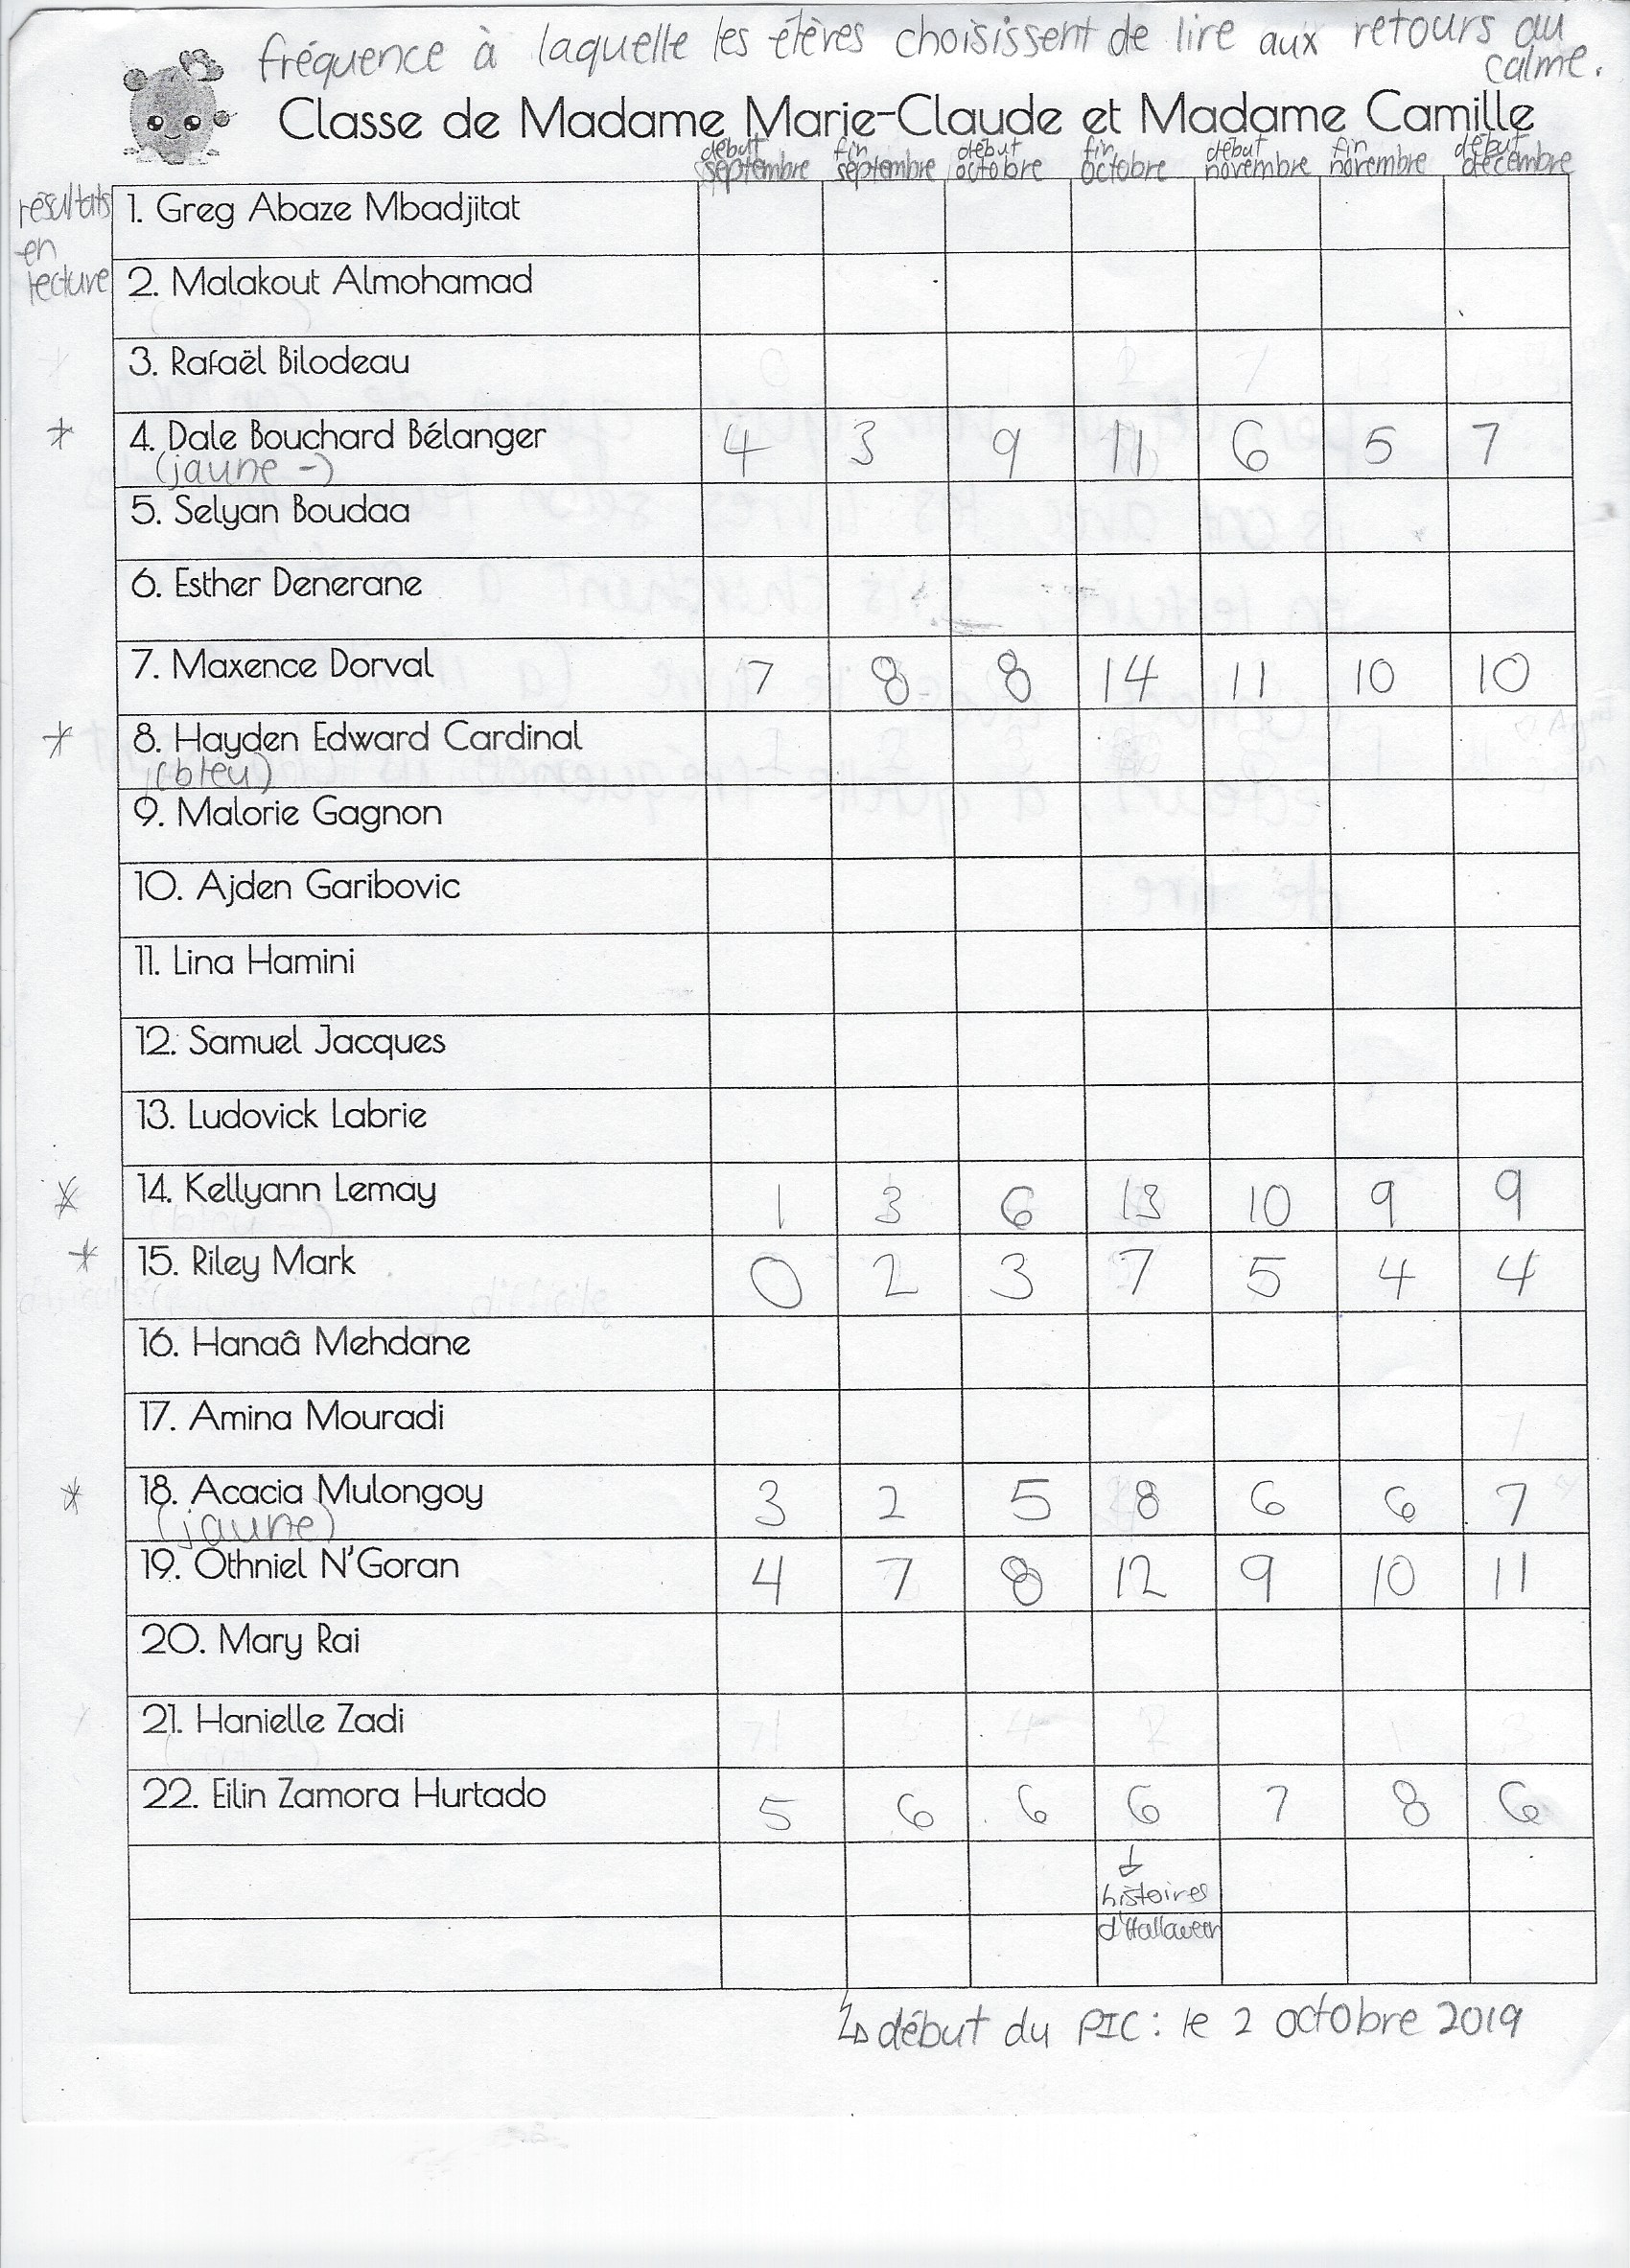 fréquence à laquelle les élèves choisissent de lire aux retours au
calme.
Classe de Madame Marie-Claude et Madame Camille
début septembre fin septembre début octobre fin octobre début novembre fin novembre début décembre
résultats
en
lecture
1. Greg Abaze Mbadjitat
2. Malakout Almohamad
3. Rafaël Bilodeau
* 4. Dale Bouchard Bélanger 4 3 9 11 6 5 7
(jaune -)
5. Selyan Boudaa
6. Esther Denerane
7. Maxence Dorval 7 8 8 14 11 10 10
* 8. Hayden Edward Cardinal
(bleu)
9. Malorie Gagnon
10. Ajden Garibovic
11. Lina Hamini
12. Samuel Jacques
13. Ludovick Labrie
* 14. Kellyann Lemay 1 3 6 13 10 9 9
* 15. Riley Mark 0 2 3 7 5 4 4
16. Hanaâ Mehdane
17. Amina Mouradi
* 18. Acacia Mulongoy 3 2 5 8 6 6 7
(jaune)
19. Othniel N'Goran 4 7 8 12 9 10 11
20. Mary Rai
21. Hanielle Zadi
22. Eilin Zamora Hurtado 5 6 6 6 7 8 6
histoires
d'Halloween
↳ début du PIC : le 2 octobre 2019